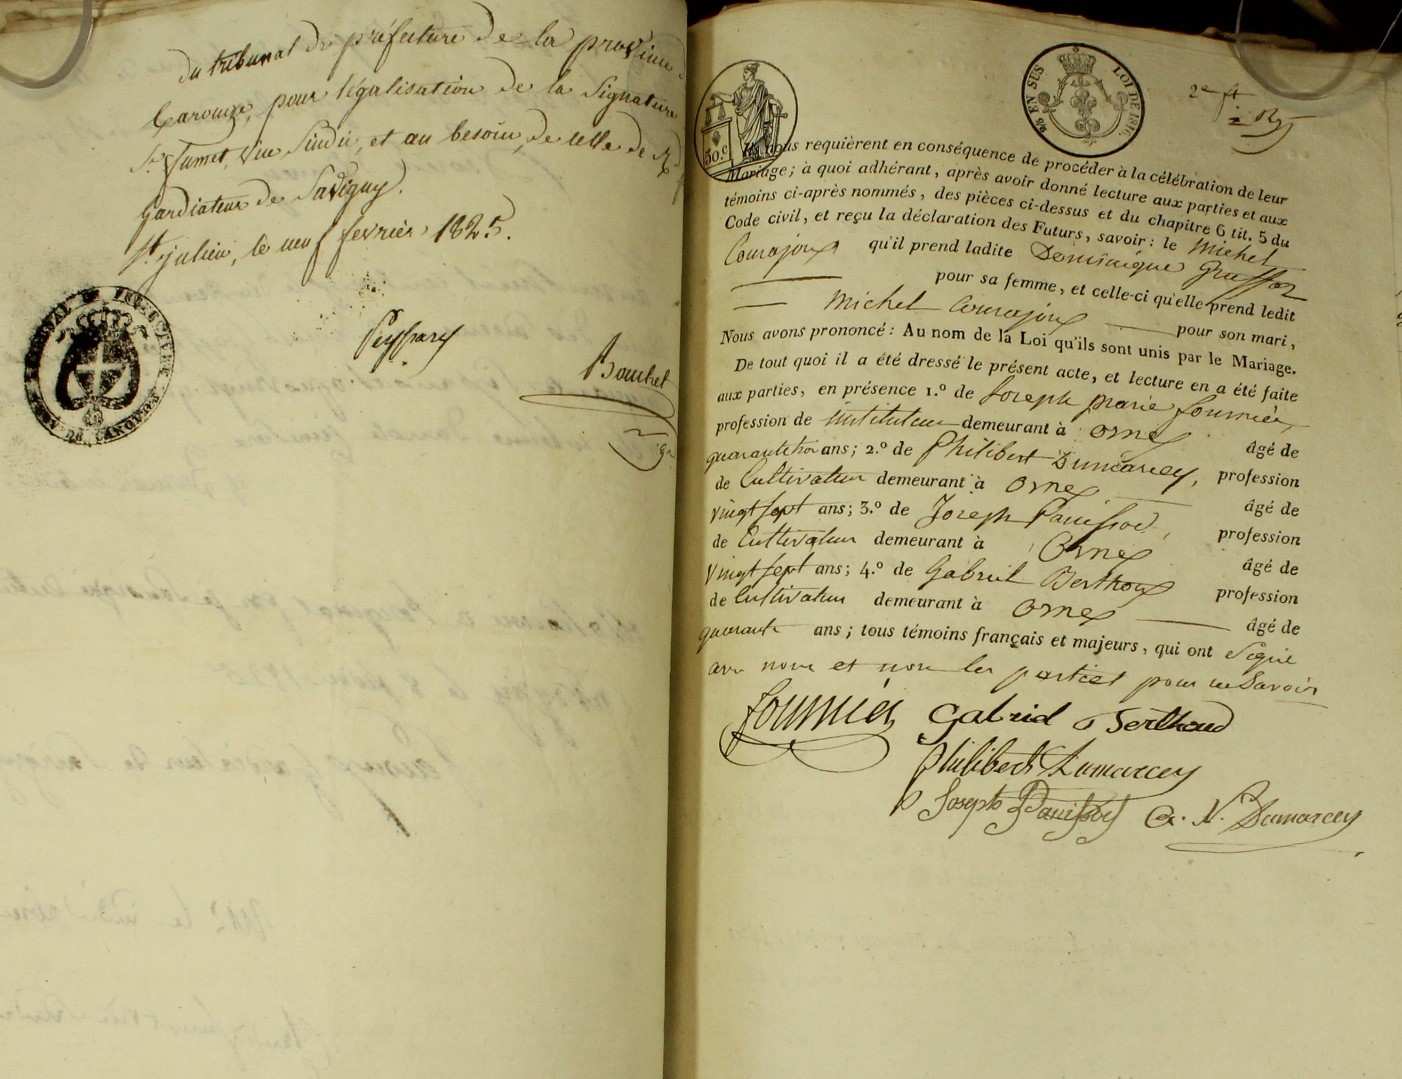 du tribunal de préfecture de la province
Carouge, pour légalisation de la Signature
Sr Jumet, vice Sindic, et au besoin, de celle de
Gardiateur de Savigny.
St julien, le neuf fevrier 1825.
Bouchet
30 c.
EN SUS
LOI DE 1816
Ils nous requièrent en conséquence de procéder à la célébration de leur
Mariage; à quoi adhérant, après avoir donné lecture aux parties et aux
témoins ci-après nommés, des pièces ci-dessus et du chapitre 6 tit. 5 du
Code civil, et reçu la déclaration des Futurs, savoir: le Michel
Courajoux qu'il prend ladite Dominique Graffoz
pour sa femme, et celle-ci qu'elle prend ledit
Michel Courajoux pour son mari,
Nous avons prononcé: Au nom de la Loi qu'ils sont unis par le Mariage.
De tout quoi il a été dressé le présent acte, et lecture en a été faite
aux parties, en présence 1.º de Joseph Marie fournier
profession de Instituteur demeurant à Ornex âgé de
quarante trois ans; 2.º de Philibert Dumarcey, profession
de Cultivateur demeurant à Ornex âgé de
vingt sept ans; 3.º de Joseph Panissod, profession
de Cultivateur demeurant à Ornex âgé de
vingt sept ans; 4.º de Gabriel Berthoux profession
de Cultivateur demeurant à Ornex âgé de
quarante ans; tous témoins français et majeurs, qui ont Signé
avec nous et non les parties pour ne Savoir
fournier Gabriel Berthoud
Philibert Dumarcey
Joseph Panissod
Dumarcey